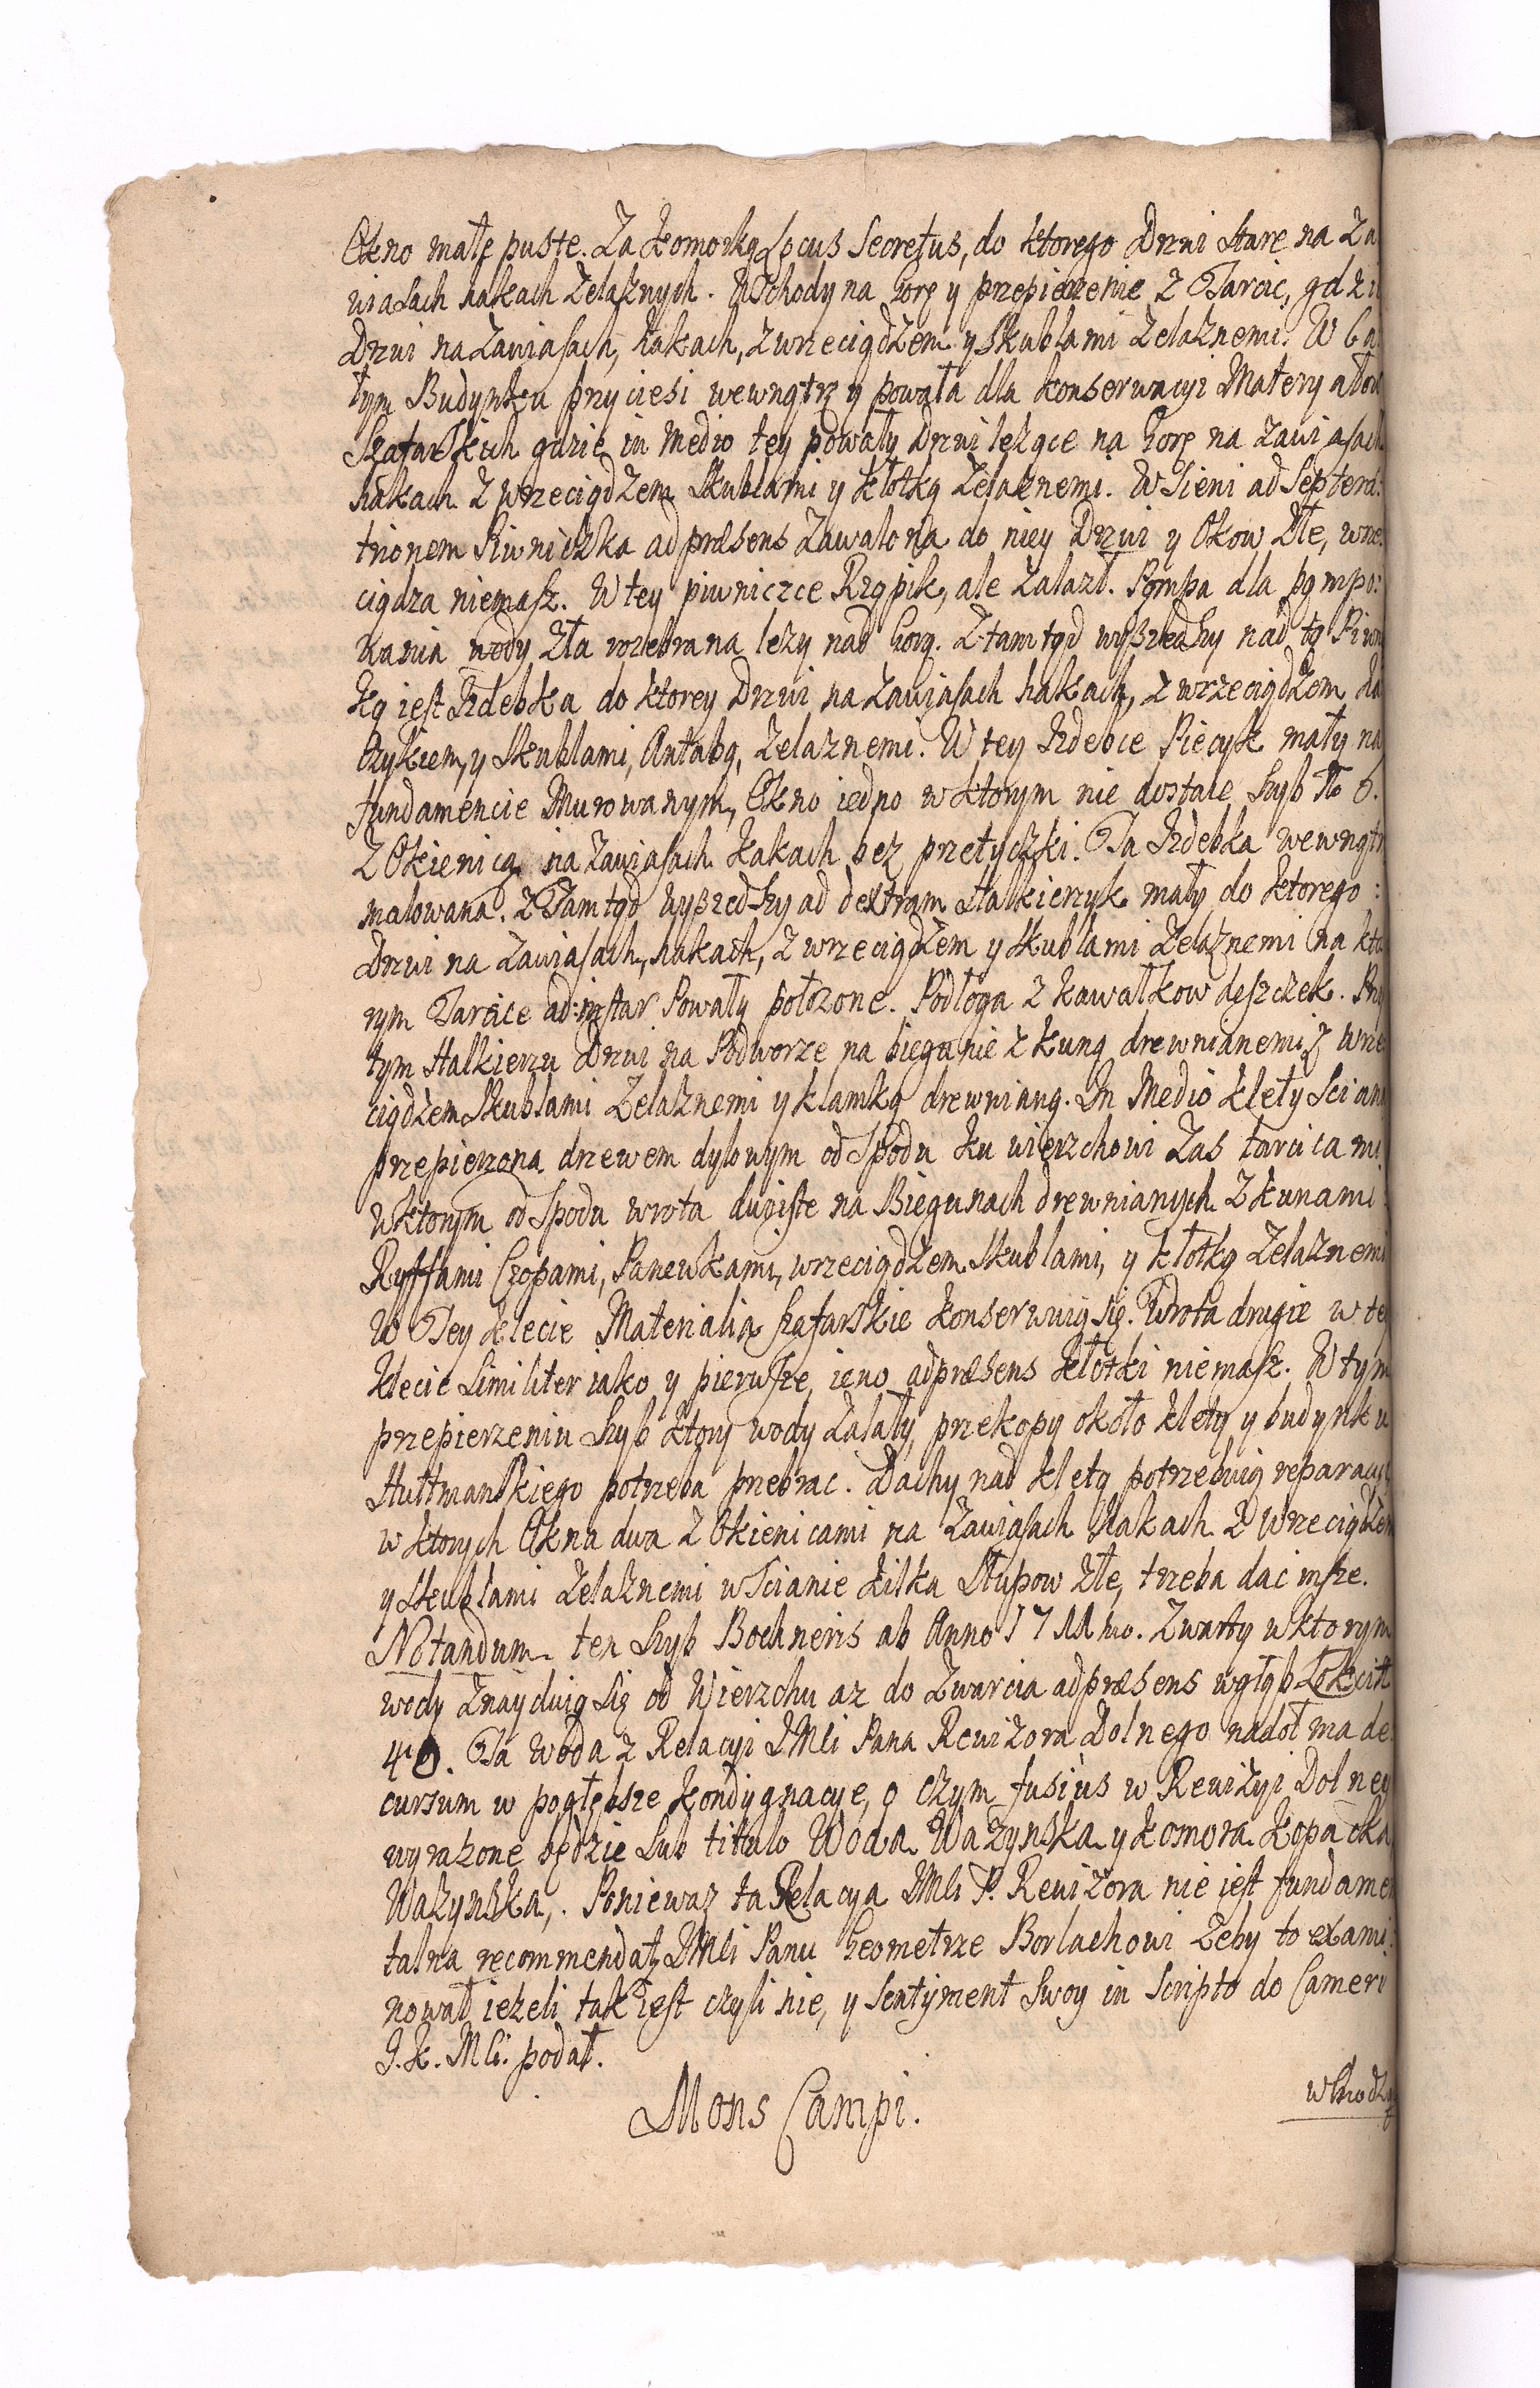 Okno małe puste. Za komorką Locus Secretus, do ktorego Drzwi stare na Za
wiasach hakach Zelaznych. Wschody na Gorę y przepierzenie z Tarcic, gdzi
Drzwi na Zawiasach, hakach, z wrzeciądzem y skublami Zelaznemi. W ca
łym Budynku przyciesi wewnątrz y powała dla konserwacyi Materyałow
Szafarskich gdzie in medio tey powały Drzwi leżące na Gorę na zawiasach
hakach z wrzeciądzem skublami y kłotką żelaznemi. W Sieni ad Septem:
trionem Piwniczka ad præsens zawalona do niey Drzwi y Okow złe, wrze
ciądza niemasz. W tey piwniczce Rząpik, ale zalazł. Pompa dla pompo:
wania wody zła rozebrana leży nad Gorą. Ztamtąd wyszedszy nad tą Piwn
ką iest Izdebka do ktorey Drzwi na zawiasach hakach, z wrzeciądzem ha
czykiem, y skublami, Antabą, żelaznemi. W tey Izdebce Piecyk mały na
fundamencie Murowanym, Okno iedno w ktorym nie dostaie szyb No 6.
z Okienicą na zawiasach hakach bez przetyczki. Ta Izdebka wewnątr
malowana. z Tamtąd wyszedszy ad dextram Alkierzyk mały do ktorego:
Drzwi na zawiasach, hakach, z wrzeciądzem y skublami Zelaznemi na kto
rym Tarcice ad instar Powały położone. Podłoga z kawałkow deszczek. Przy
tym Alkierzu Drzwi na Podworze na biegunie z kuną drewnianemi z wrze
ciądzem skublami Zelaznemi y klamką drewnianą. In Medio klety Sciana
przepierzona drzewem dylowym od spodu ku wierzchowi zas tarcicami
w ktorym od spodu wrota dwoiste na Biegunach drewnianych z kunami
Ryffami Czopami, Panewkami, wrzeciądzem skublami, y kłotką żelaznemi
W Tey klecie Materialia szafarskie konserwuią się. Wrota drugie w tey
klecie similiter iako y pierwsze, ieno ad præsens kłotki niemasz. W tym
przepierzeniu Szyb ktory wody zalały, przekopy około klety y budynku
Hutmanskiego potrzeba przebrac. Dachy nad kletą potrzebuią reparacyi
w ktorych Okna dwa z Okienicami na zawiasach hakach z wrzeciądzem
y skublami żelaznemi w Scianie kilka słupow złe, trzeba dac insze.
Notandum ten Szyb Bochneris ab Anno 1711mo. Zwarty w ktorym
wody znayduią się od Wierzchu az do zwarcia ad præsens wgłąb Łokcit
40. Ta Woda z Relacyi JMli Pana Rewizora Dolnego nadoł ma de
cursum w pogłębsze kondygnacye, o czym fusius w Rewizyi Dolney
wyrażone będzie sub titulo Woda Ważynska y komora kopacka
Ważynska,. Poniewaz ta Relacya JMli P. Rewizora nie iest fundamen
talna recommendatz JMli Panu Geometrze Borlachowi zeby to exami:
nował ieżeli tak iest czyli nie, y sentyment swoy in Scripto do Camery
J. K. Mli. podał.
Mons Campi.
wschodz